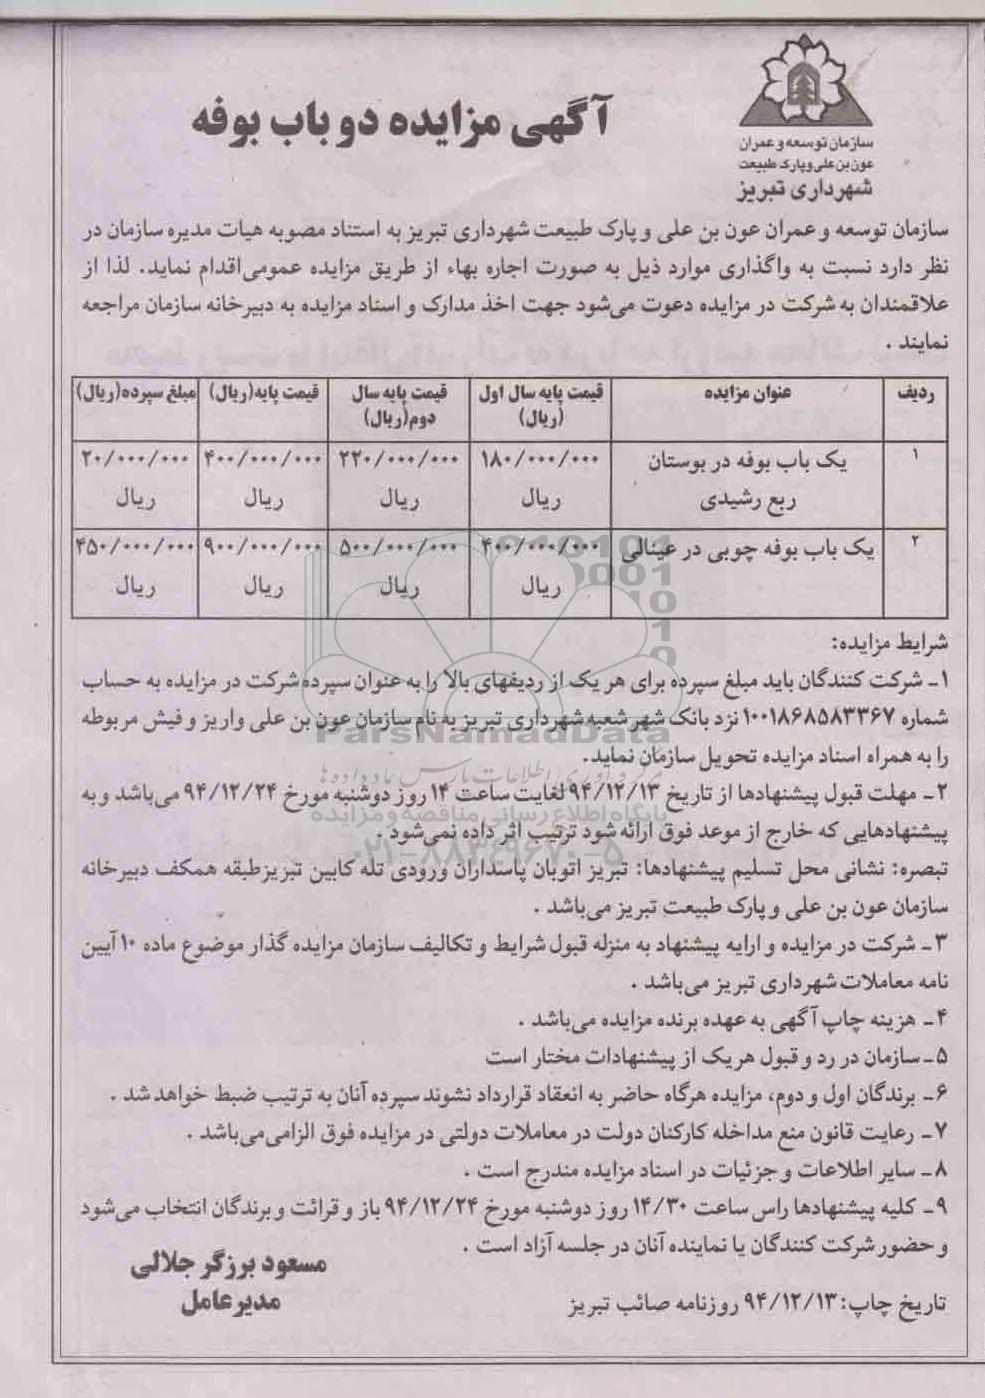 سازمان توسعه و عمران
عون بن علی و پارک طبیعت
شهرداری تبریز
آگهی مزایده دو باب بوفه
سازمان توسعه و عمران عون بن علی و پارک طبیعت شهرداری تبریز به استناد مصوبه هیات مدیره سازمان در
نظر دارد نسبت به واگذاری موارد ذیل به صورت اجاره بهاء از طریق مزایده عمومی اقدام نماید. لذا از
علاقمندان به شرکت در مزایده دعوت می‌شود جهت اخذ مدارک و اسناد مزایده به دبیرخانه سازمان مراجعه
نمایند .
ردیف | عنوان مزایده | قیمت پایه سال اول (ریال) | قیمت پایه سال دوم(ریال) | قیمت پایه(ریال) | مبلغ سپرده(ریال)
۱ | یک باب بوفه در بوستان ربع رشیدی | ۱۸۰/۰۰۰/۰۰۰ ریال | ۲۲۰/۰۰۰/۰۰۰ ریال | ۴۰۰/۰۰۰/۰۰۰ ریال | ۲۰/۰۰۰/۰۰۰ ریال
۲ | یک باب بوفه چوبی در عینالی | ۴۰۰/۰۰۰/۰۰۰ ریال | ۵۰۰/۰۰۰/۰۰۰ ریال | ۹۰۰/۰۰۰/۰۰۰ ریال | ۴۵۰/۰۰۰/۰۰۰ ریال
شرایط مزایده:
۱- شرکت کنندگان باید مبلغ سپرده برای هر یک از ردیفهای بالا را به عنوان سپرده شرکت در مزایده به حساب
شماره ۱۰۰۱۸۶۸۵۸۳۳۶۷ نزد بانک شهر شعبه شهرداری تبریز به نام سازمان عون بن علی واریز و فیش مربوطه
را به همراه اسناد مزایده تحویل سازمان نماید.
۲- مهلت قبول پیشنهادها از تاریخ ۹۴/۱۲/۱۳ لغایت ساعت ۱۴ روز دوشنبه مورخ ۹۴/۱۲/۲۴ می‌باشد و به
پیشنهادهایی که خارج از موعد فوق ارائه شود ترتیب اثر داده نمی‌شود .
تبصره: نشانی محل تسلیم پیشنهادها: تبریز اتوبان پاسداران ورودی تله کابین تبریز طبقه همکف دبیرخانه
سازمان عون بن علی و پارک طبیعت تبریز می‌باشد .
۳- شرکت در مزایده و ارایه پیشنهاد به منزله قبول شرایط و تکالیف سازمان مزایده گذار موضوع ماده ۱۰ آیین
نامه معاملات شهرداری تبریز می‌باشد .
۴- هزینه چاپ آگهی به عهده برنده مزایده می‌باشد .
۵- سازمان در رد و قبول هر یک از پیشنهادات مختار است
۶- برندگان اول و دوم، مزایده هرگاه حاضر به انعقاد قرارداد نشوند سپرده آنان به ترتیب ضبط خواهد شد .
۷- رعایت قانون منع مداخله کارکنان دولت در معاملات دولتی در مزایده فوق الزامی می‌باشد .
۸- سایر اطلاعات و جزئیات در اسناد مزایده مندرج است .
۹- کلیه پیشنهادها راس ساعت ۱۴/۳۰ روز دوشنبه مورخ ۹۴/۱۲/۲۴ باز و قرائت و برندگان انتخاب می‌شود
و حضور شرکت کنندگان یا نماینده آنان در جلسه آزاد است .
مسعود برزگر جلالی
مدیرعامل
تاریخ چاپ: ۹۴/۱۲/۱۳ روزنامه صائب تبریز
ParsNamadData
پایگاه اطلاع رسانی مناقصه و مزایده
۰۲۱-۸۸۳۴۹۶۷۰-۵